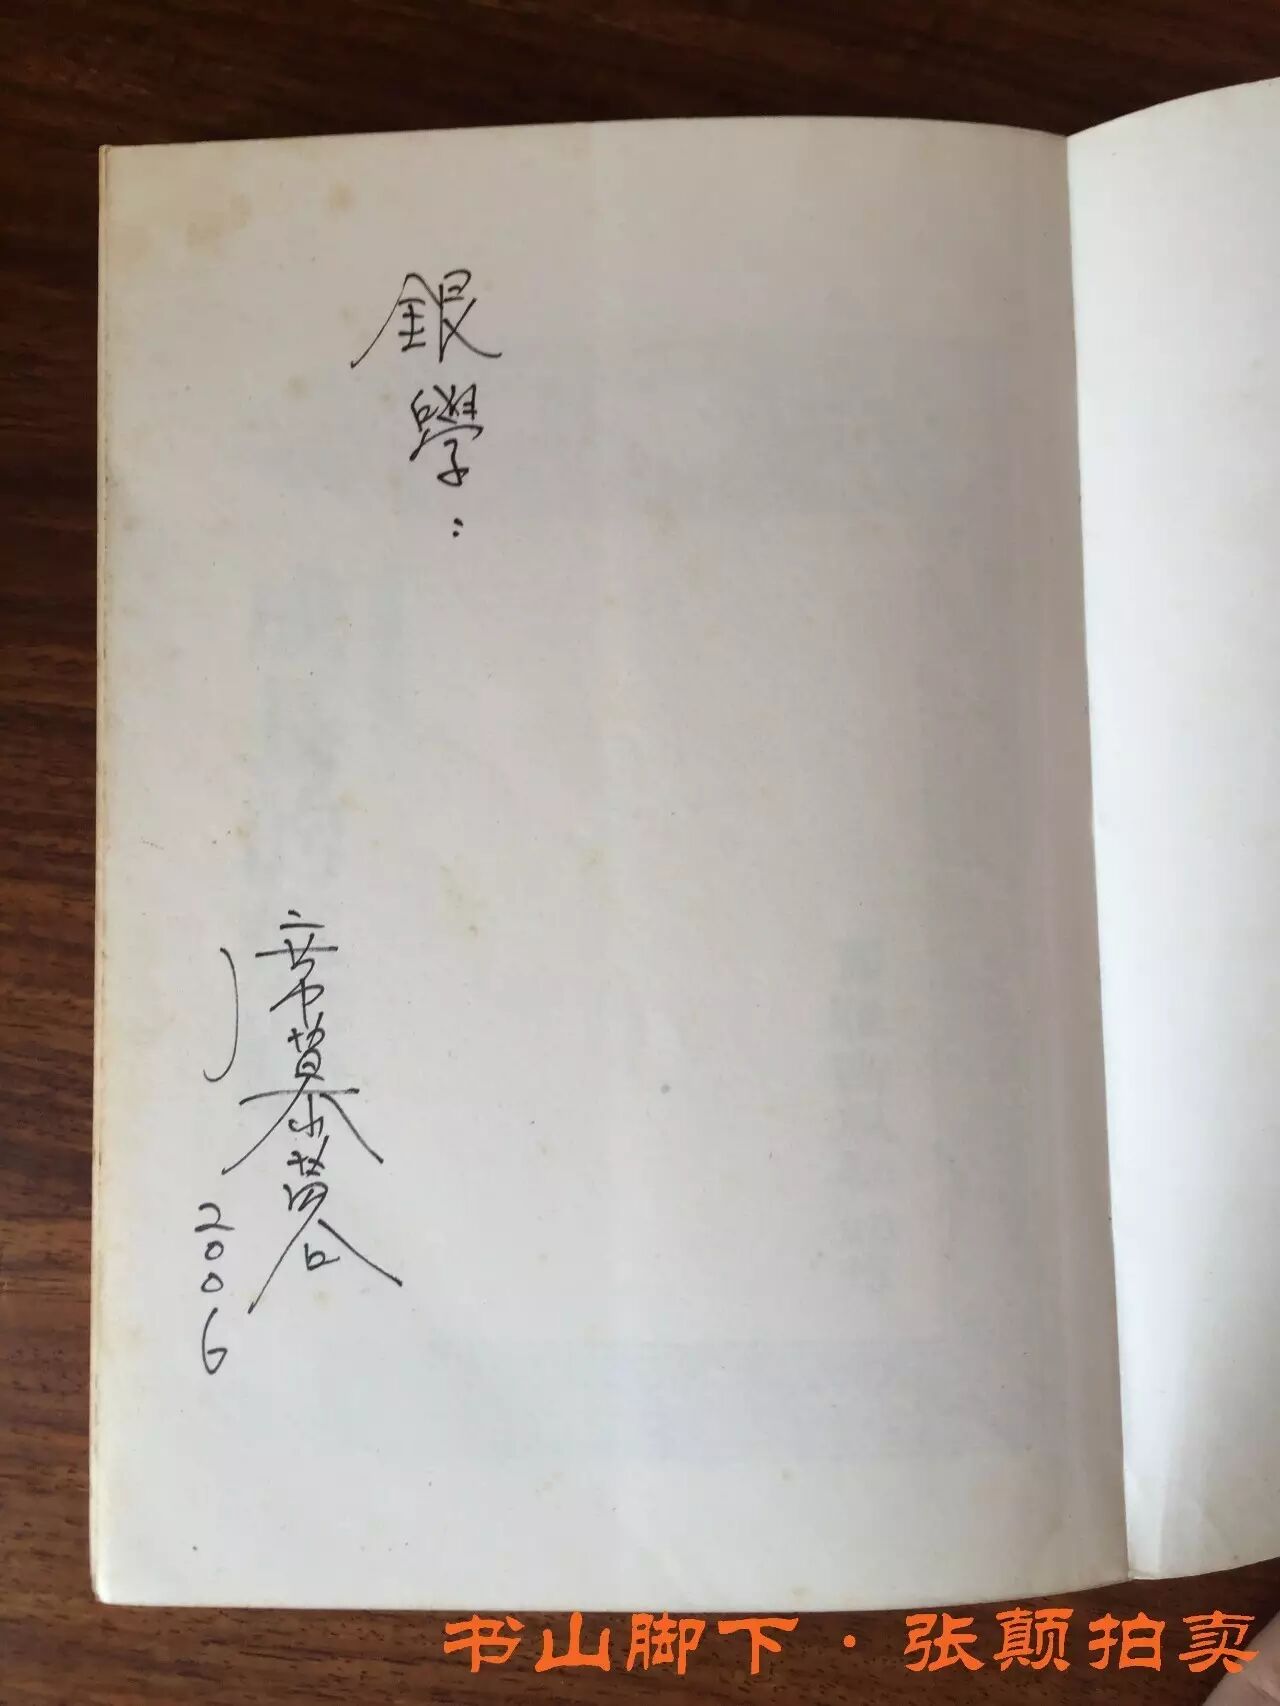 銀學：
席慕蓉
2006
书山脚下·张颠拍卖